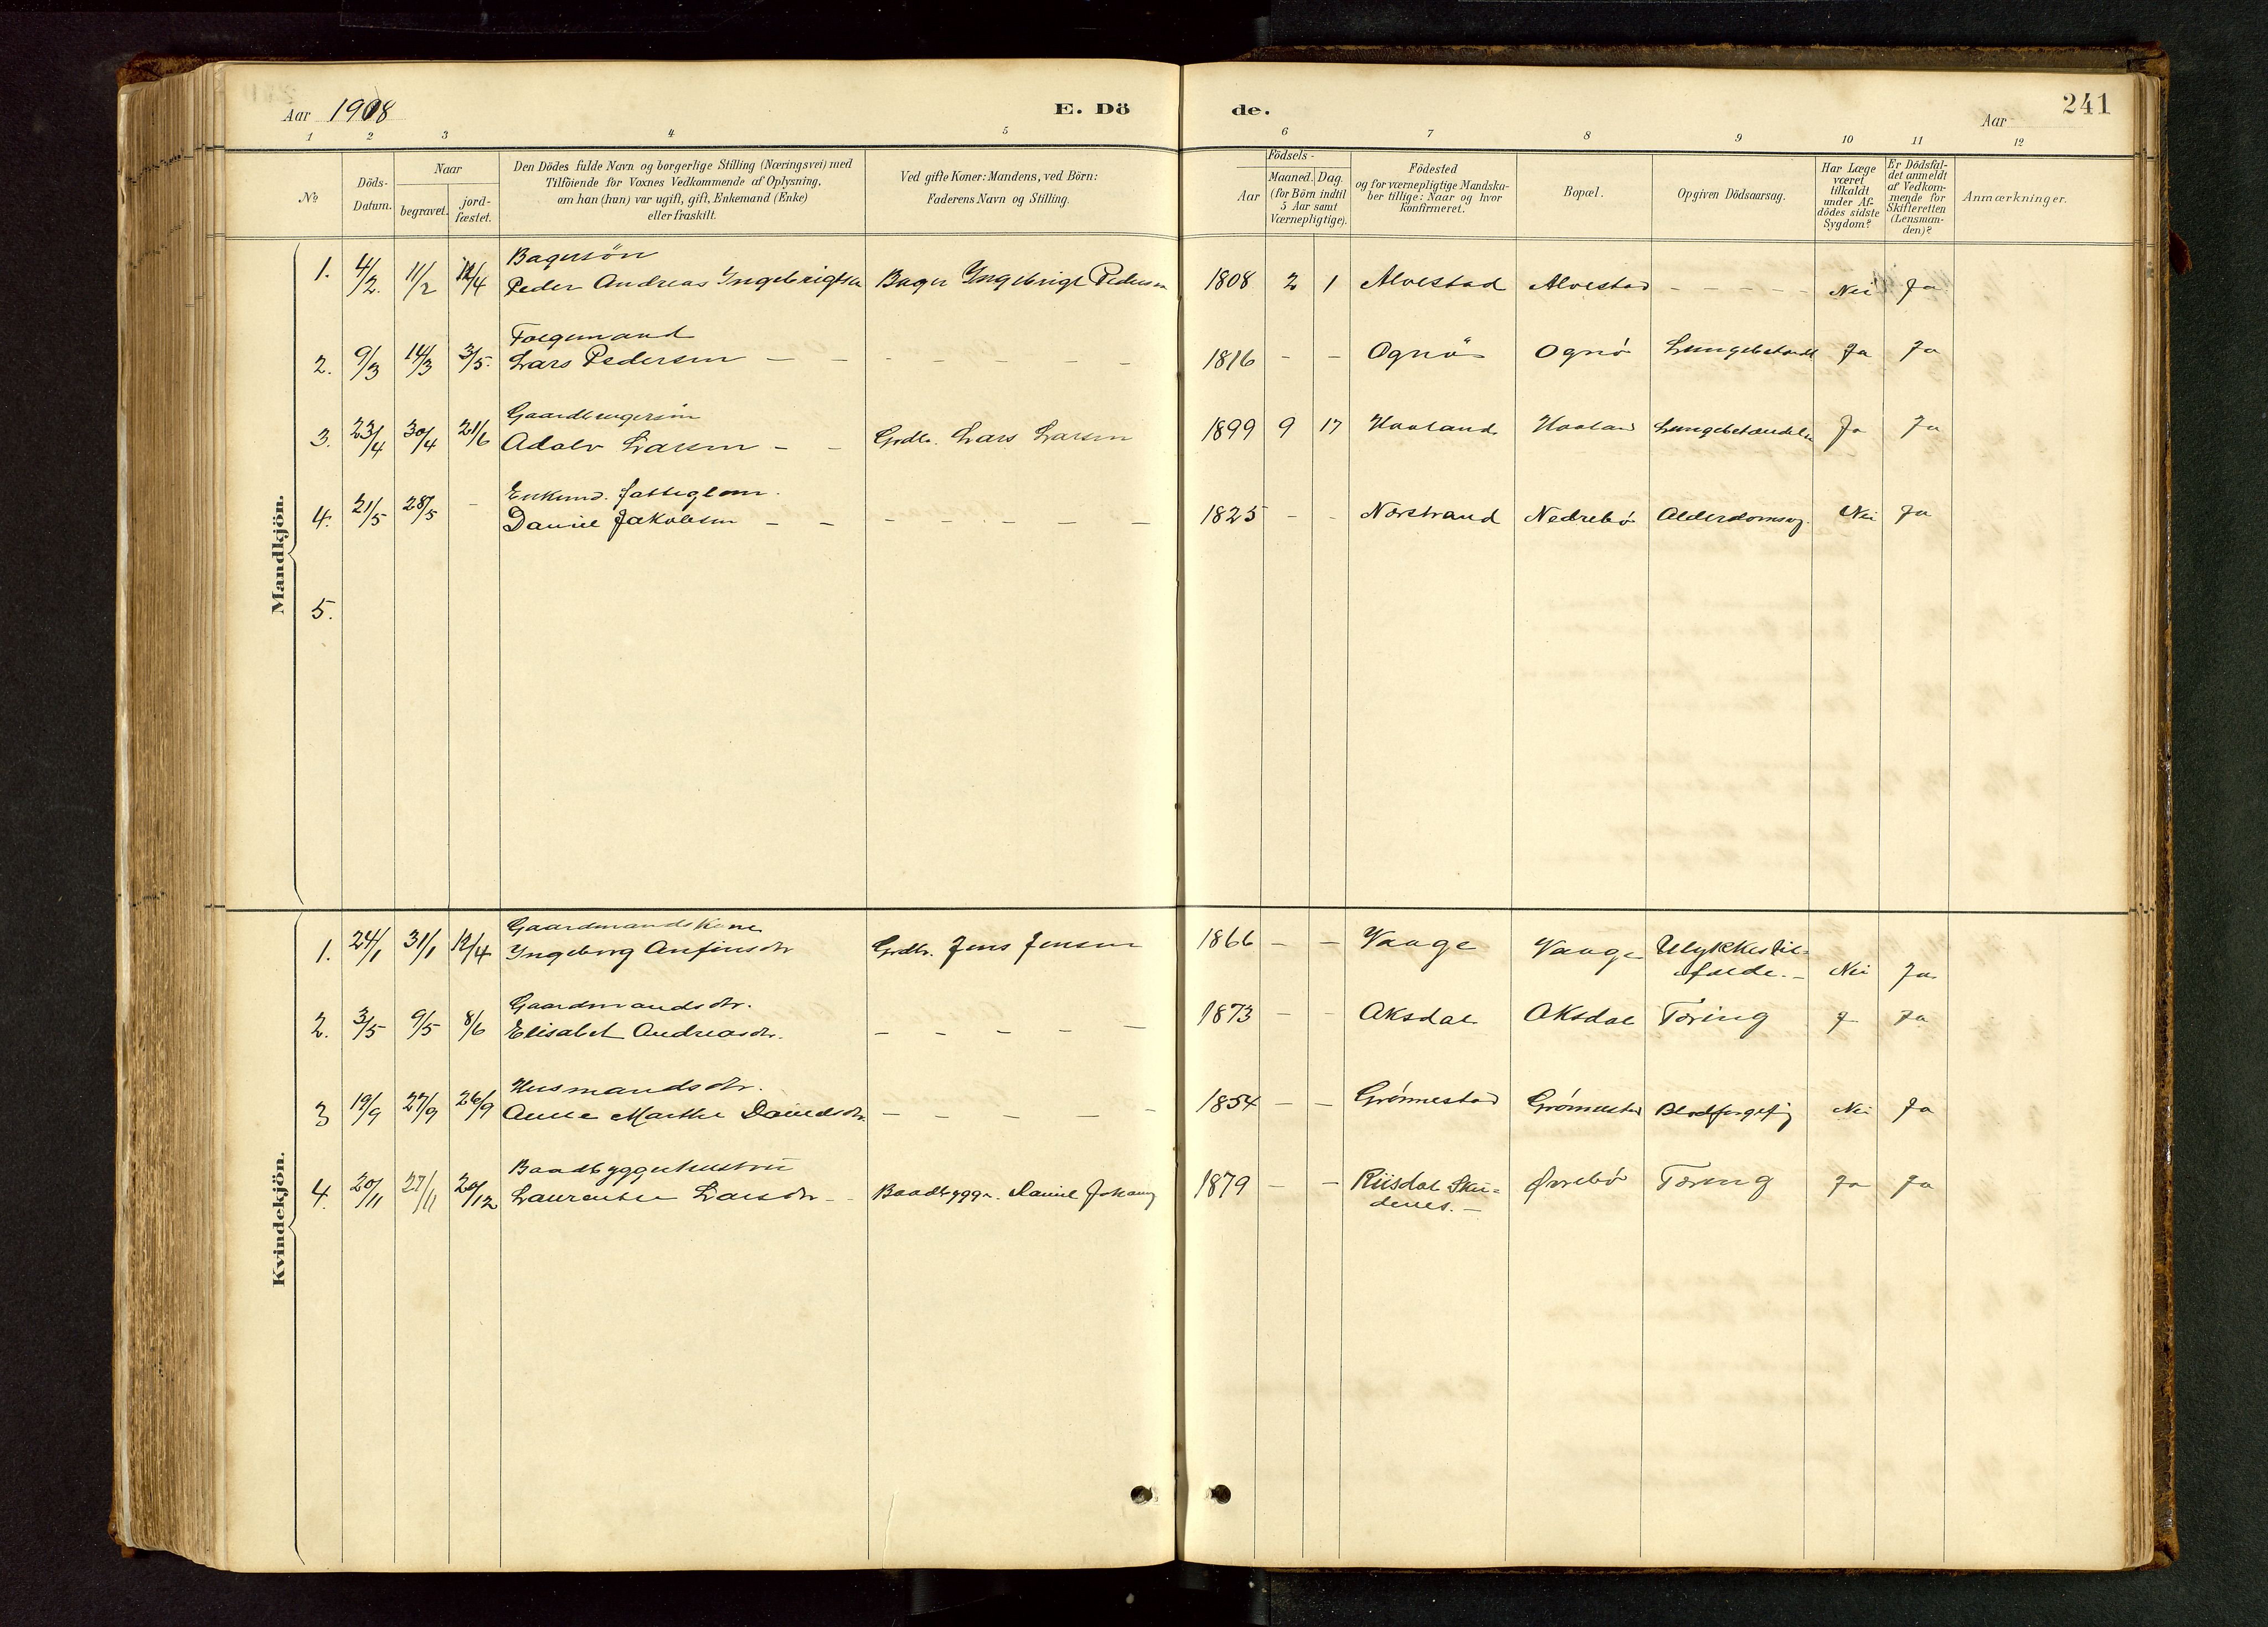 Aar 1908 E. Dö de. Aar 241
1 2 3 4 5 6 7 8 9 10 11 12
No.
Döds-Datum.
Naar
begravet.
jord-fæstet.
Den Dödes fulde Navn og borgerlige Stilling (Næringsvei) med
Tilföiende for Voxnes Vedkommende af Oplysning,
om han (hun) var ugift, gift, Enkemand (Enke)
eller fraskilt.
Ved gifte Koner: Mandens, ved Börn:
Faderens Navn og Stilling.
Födsels-
Aar
Maaned. Dag.
(for Börn indtil
5 Aar samt
Værnepligtige).
Födested
og for værnepligtige Mandska-
ber tillige: Naar og hvor
konfirmeret.
Bopæl.
Opgiven Dödsaarsag.
Har Læge
været
tilkaldt
under Af-
dödes sidste
Sygdom?
Er Dödsfal-
det anmeldt
af Vedkom-
mende for
Skifteretten
(Lensman-
den)?
Anmærkninger.
Mandkjön.
Bagersön
1. 4/2. 11/2 12/4 Peder Andreas Ingebrigtsen Bager Ingebrigt Pedersen 1808 2 1 Alvestad Alvestad - - - - - Nei Ja
2. 9/3 14/3 3/5. Lars Pedersen - - - - - - - 1816 - - Ognö Ognö Ja Ja
Gaardbrugersön
3. 23/4 30/4 21/6 Adolv Larsen - - Grdbr. Lars Larsen 1899 9 17 Haaland Haaland Lungebetændelse Ja Ja
Enkemd. fattiglem.
4. 21/5 28/5 - Daniel Jakobsen - - - - - - - 1825 - - Nærstrand Nedrebö Alderdomsvag. Nei Ja
5.
Kvindekjön.
Gaardmandskone
1. 24/1 31/1 12/4 Ingeborg Anfinsdtr Grdbr. Jens Jensen 1866 - - Vaage Vaage Ulykkestil-
fælde. - Nei Ja
Gaardmandsdtr.
2. 3/5 9/5 8/6 Elisabet Andreasdtr. - - - - - 1873 - - Aksdal Aksdal Tæring J Ja
Husmandsdtr.
3 19/9 27/9 26/9 Anne Marthe Danielsdtr. - - - - - 1854 - - Grönnestad Grönnestad Blodforgiftg Nei Ja
Baadbyggerhustru
4. 20/11 27/11 20/12 Laurentse Larsdtr - - Baadbygger. Daniel 1879 - - Riisdal Sku=
denes. - Örrebö Tæring Ja Ja